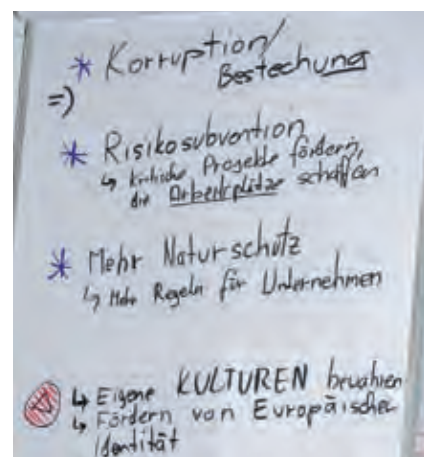 * Korruption/
Bestechung
=>
* Risikosubvention
↳ kritische Projekte fördern,
die Arbeitsplätze schaffen
* Mehr Naturschutz
↳ Mehr Regeln für Unternehmen
↳ Eigene KULTUREN bewahren
↳ Fördern von Europäischer
Identität